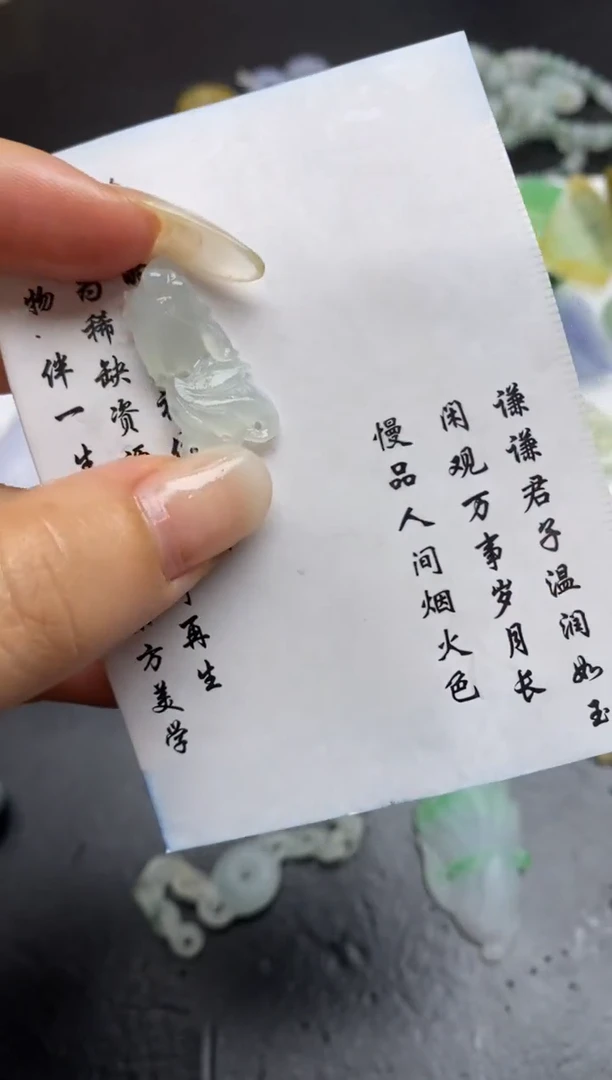 谦谦君子温润如玉
闲观万事岁月长
慢品人间烟火色
再生
为稀缺资 方美学
物·伴一生